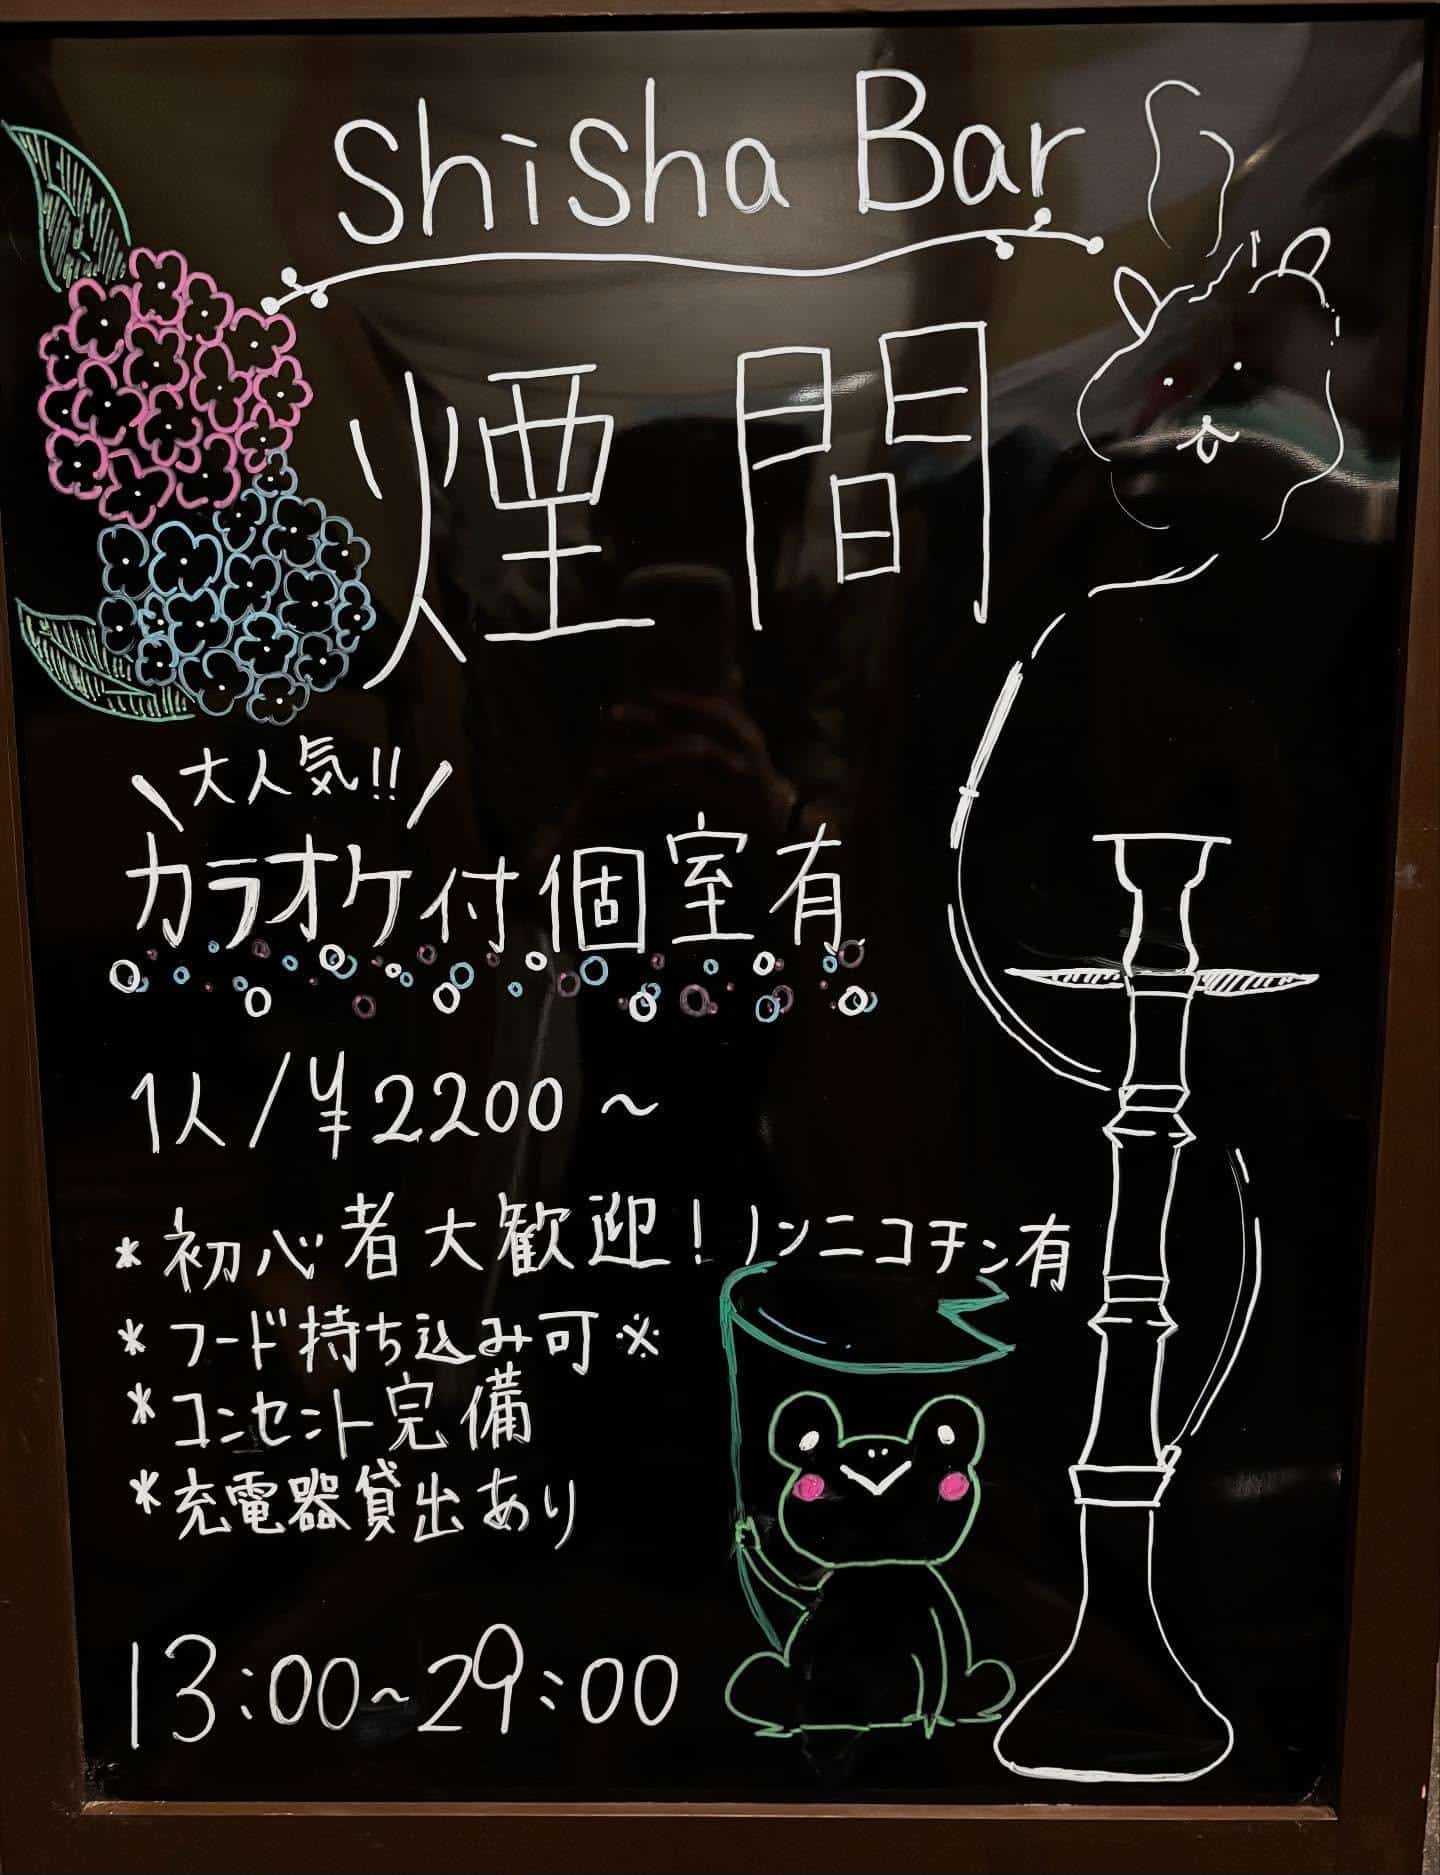 Shisha Bar
煙間
\大人気!!/
カラオケ付個室有
1人/¥2200～
*初心者大歓迎!ノンニコチン有
*フード持ち込み可※
*コンセント完備
*充電器貸出あり
13:00~29:00